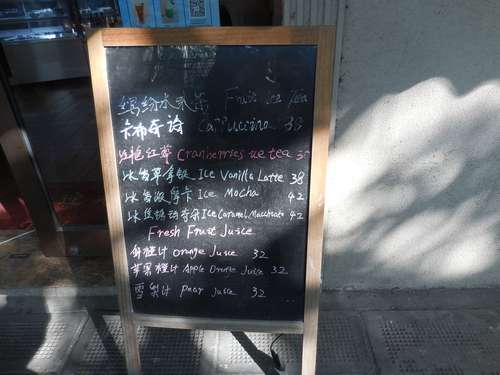 缤纷水果茶 Fruit ice tea
卡布奇诺 Cappuccino 38
红艳红莓 Cranberries ice tea
冰香草拿铁 Ice Vanilla Latte 38
冰香浓摩卡 Ice Mocha 42
冰焦糖玛奇朵 Ice Caramel Macchiato 42
Fresh Fruit Juice
鲜橙汁 Orange Juice 32
苹果橙汁 Apple Orange Juice 32
雪梨汁 Pear Juice 32